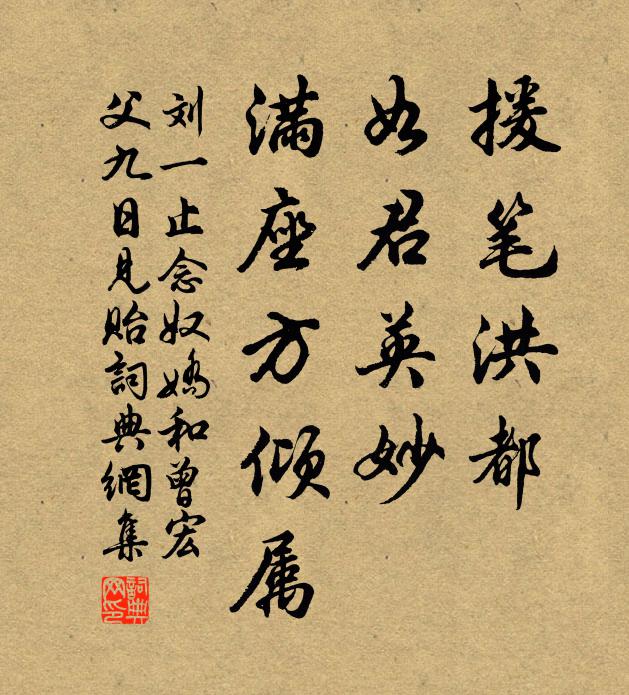 援笔洪都
如君英妙
满座方倾属
刘一止念奴娇和曾宏
父九日见贻词典網集
詞典网印